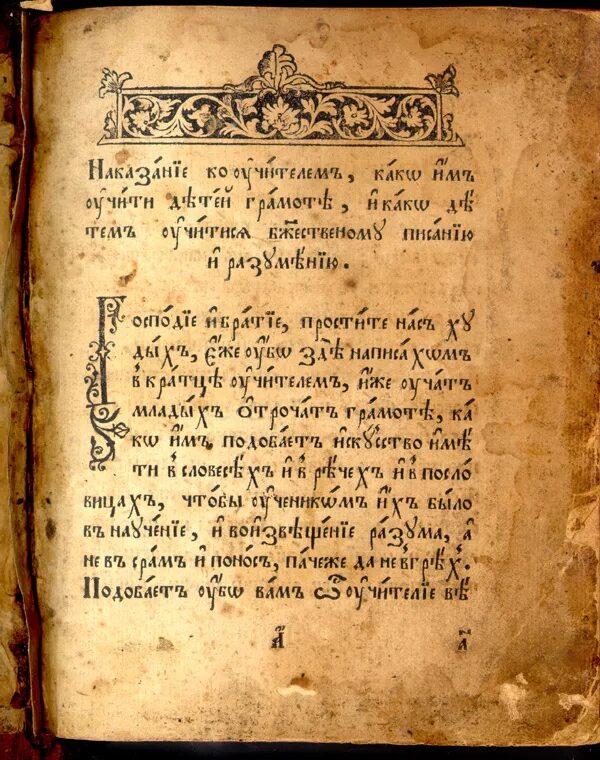 Наказа́нїе ко ᲂу҆чи́телемъ, ка́кѡ и҆̀мъ
ᲂу҆чи́ти дѣте́й гра́мотѣ, и҆ ка́кѡ дѣ́
темъ ᲂу҆чи́тисѧ бж҃е́ственомꙋ писа́нїю
и҆ разꙋмѣ́нїю.
Госпо́дїе и҆ бра́тїе, прости́те на́съ хꙋ
ды́хъ, є҆́же ᲂу҆́бѡ здѣ̀ написа́хѡмъ
в кра́тцѣ ᲂу҆чи́телемъ, и҆́же ᲂу҆ча́тъ
млады́хъ ѻ҆троча́тъ гра́мотѣ, ка́
кѡ и҆̀мъ подоба́етъ и҆скꙋ́сство и҆мѣ́
ти в словесѣ́хъ и҆ в рѣ́чехъ и҆ в посло́
вицахъ, что́бы ᲂу҆ченикѡ́мъ и҆́хъ бы́ло
въ наꙋче́нїе, и҆ во и҆звѣще́нїе ра́зꙋма, а҆
не въ сра́мъ и҆ поно́съ, па́чеже да не в грѣ́хъ.
Подоба́етъ ᲂу҆́бѡ ва́мъ ѽ ᲂу҆чи́телїе вѣ́
а҃ а҃